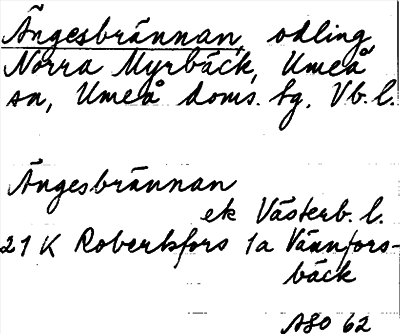 Ängesbrännan, odling
Norra Myrbäck, Umeå
sn, Umeå doms. tg, Vb. l.
Ängesbrännan
ek Västerb. l.
21 K Robertsfors 1a Vännfors-
bäck
ASO 62